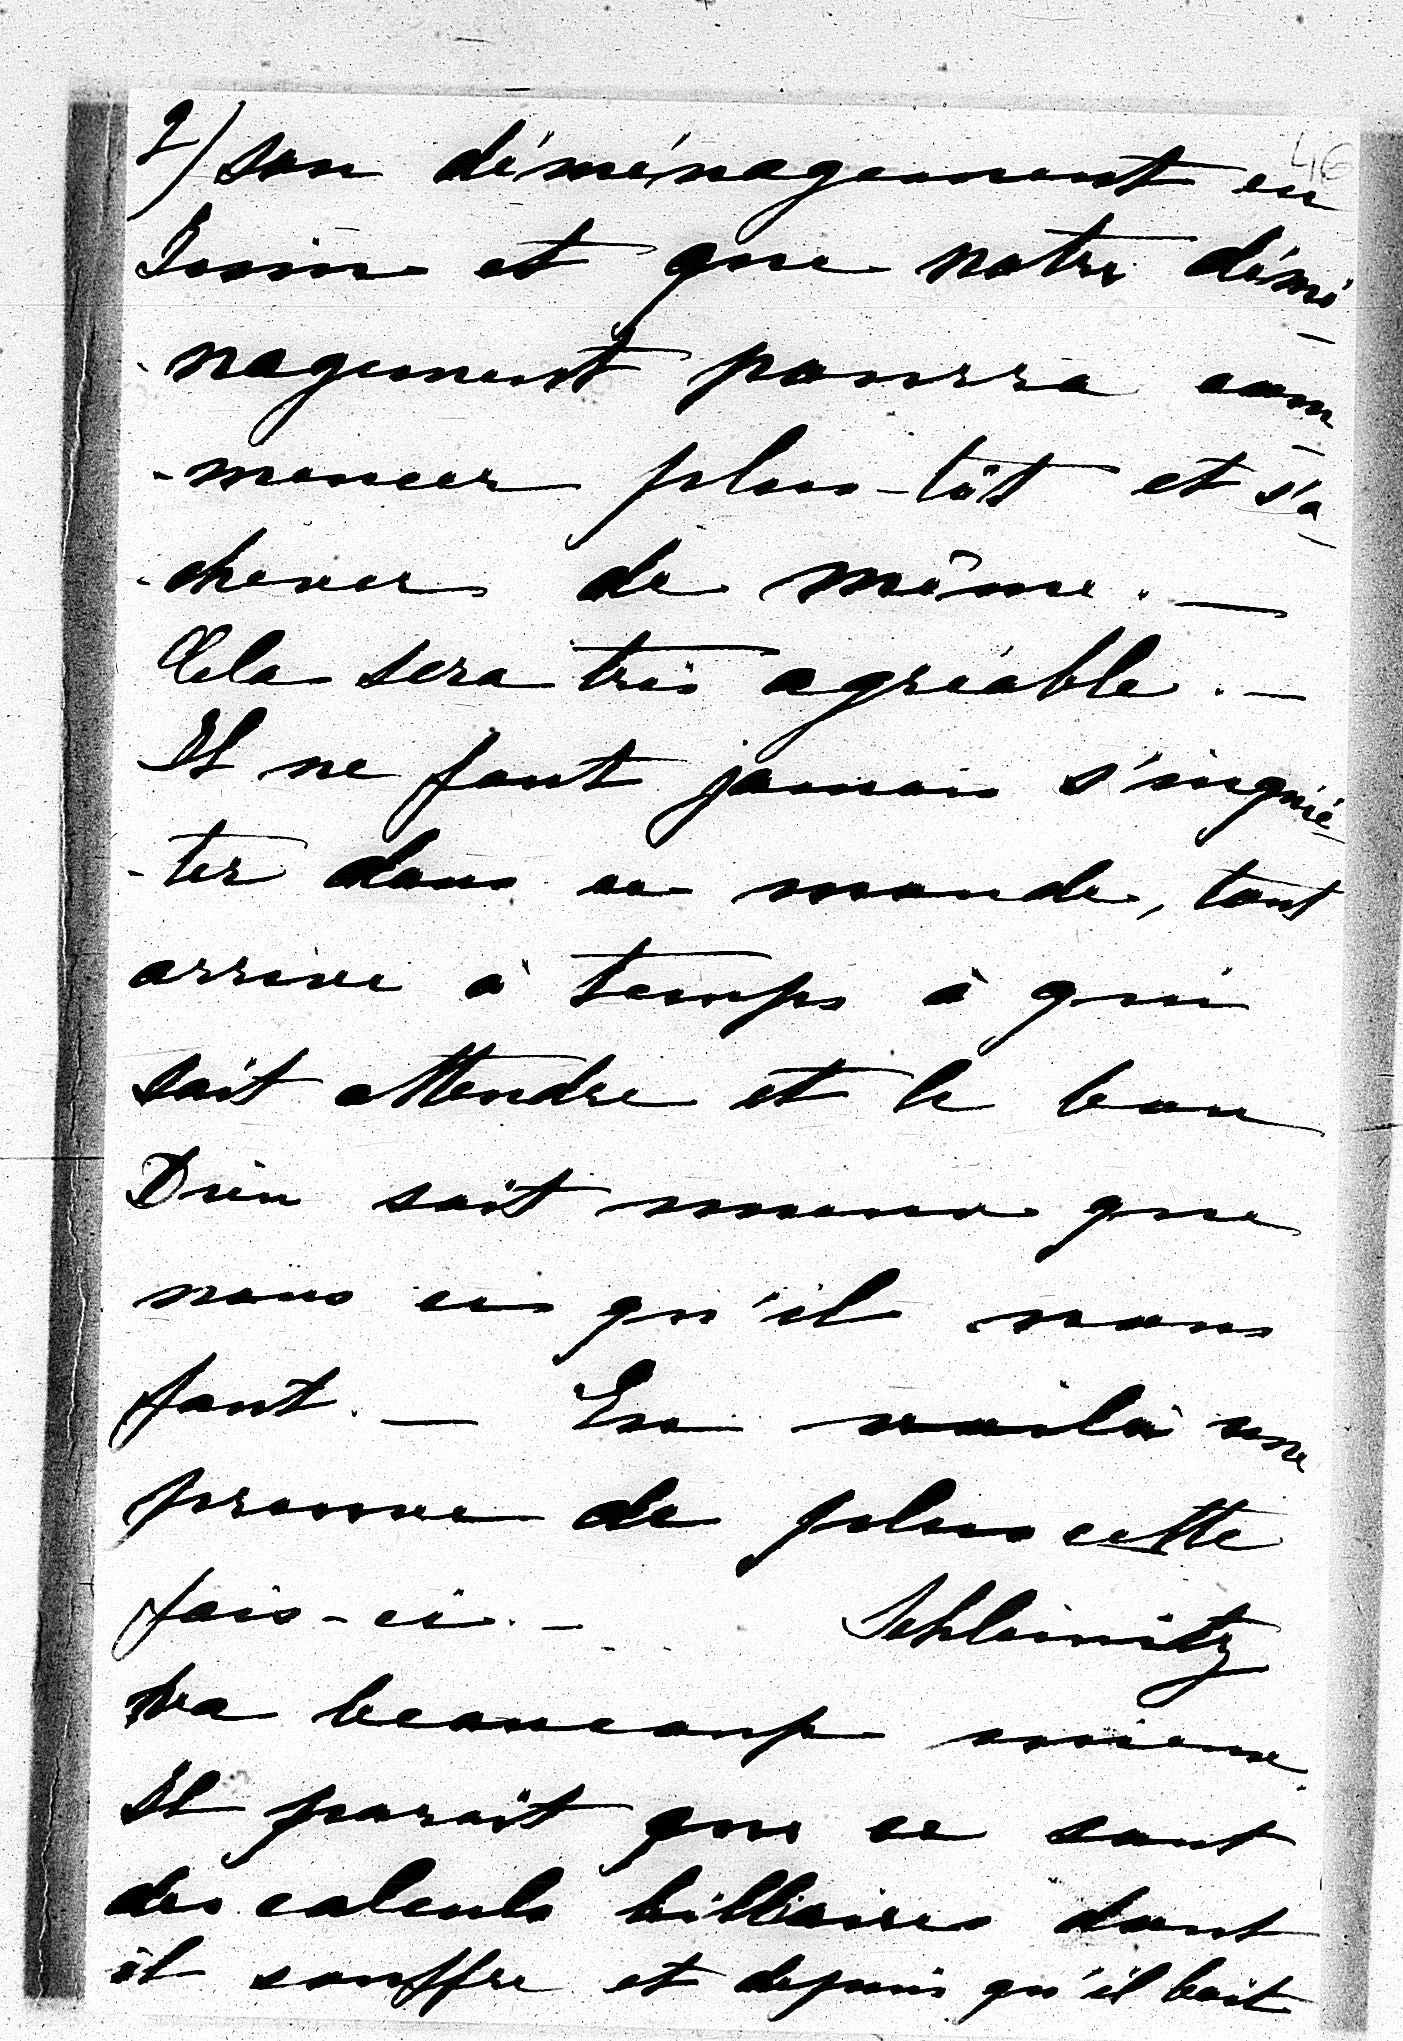 46
2/ son déménagement en
Juin et que notre démé-
-nagement pourra com-
-mencer plus-tôt et s'a-
-chever de même. —
Cela sera très agréable. —
Il ne faut jamais s'inquié-
-ter dans ce monde, tout
arrive à temps à qui
sait attendre et le bon
Dieu sait mieux que
nous ce qu'il nous
faut. — En voilà une
preuve de plus cette
fois-ci. — Schleinitz
va beaucoup mieux.
Il parait que ce sont
des calculs billiaires dont
il souffre et depuis qu'il boit